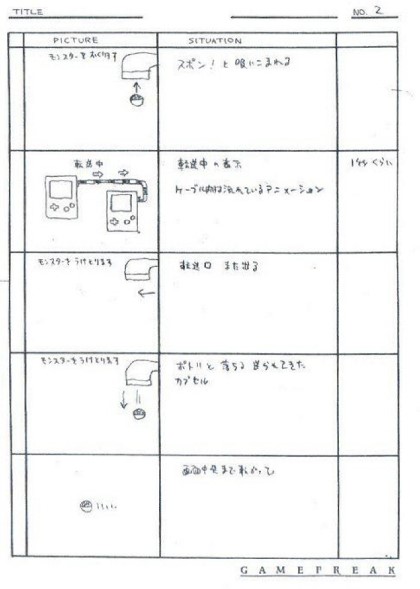 TITLE
NO. 2
PICTURE
SITUATION
モンスターをおくります
スポン! と 吸いこまれる
転送中
転送中の表示
ケーブル内を流れているアニメーション
1秒くらい
モンスターをうけとります
転送口 また出る
モンスターをうけとります
ポトリと 落ちる 送られてきた
カプセル
画面中央まで転がって
GAMEFREAK